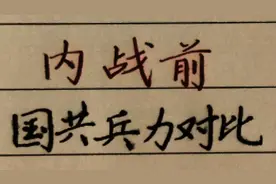 内战前
国共兵力对比